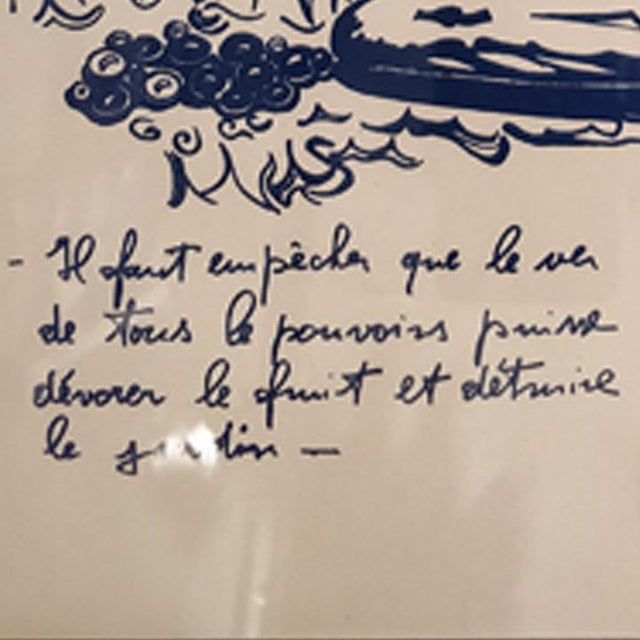 - Il faut empêcher que le ver
de tous le pouvoirs puisse
dévorer le fruit et détruire
le jardin —